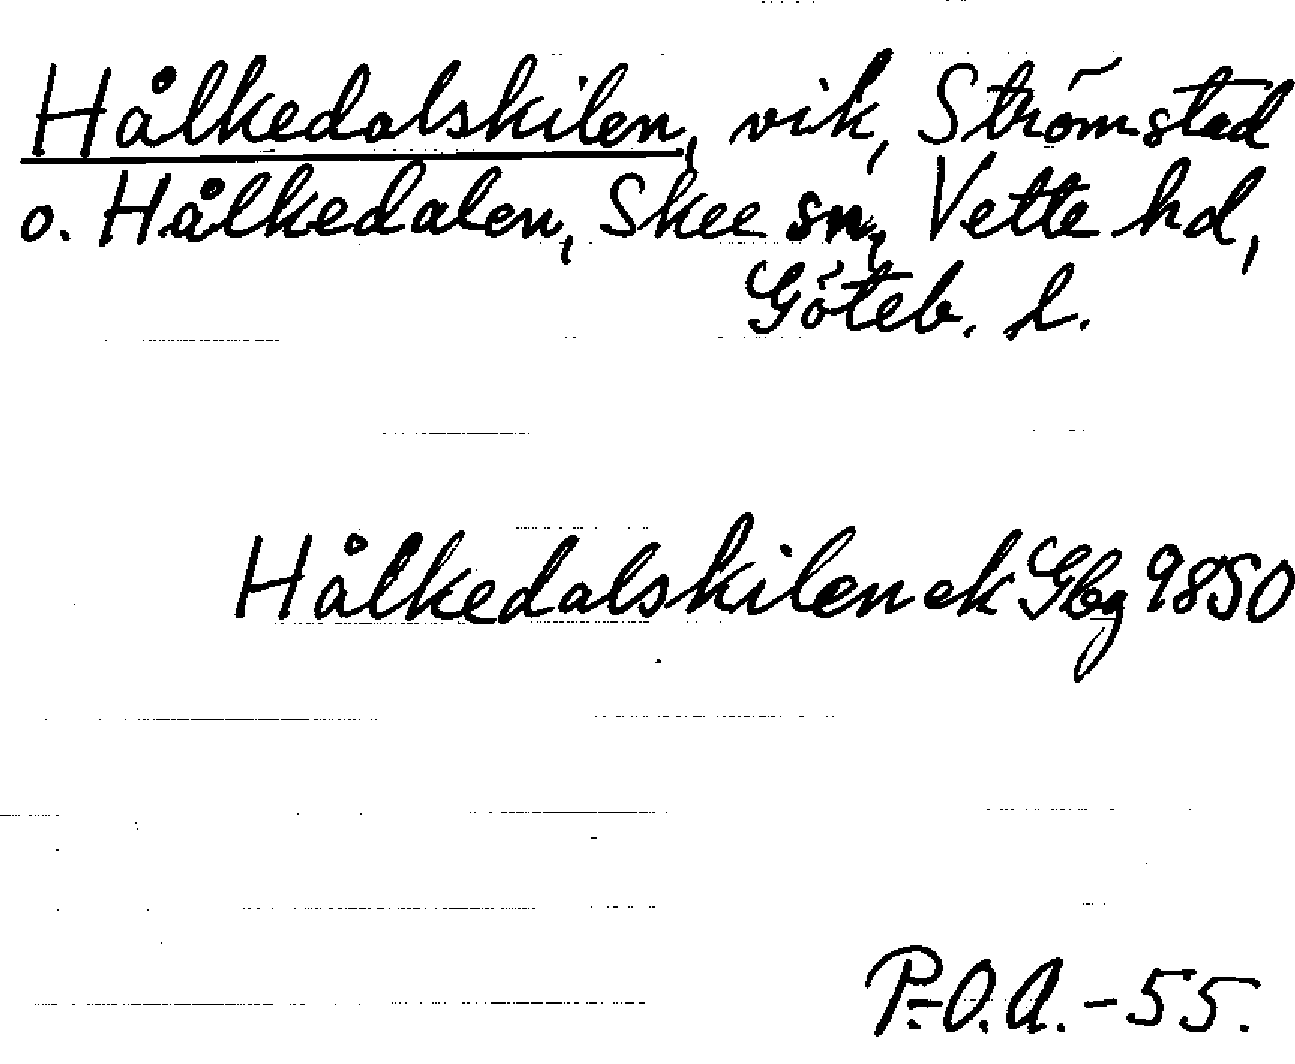 Hålkedalskilen, vik, Strömstad
o. Hålkedalen, Skee sn, Vette hd,
Göteb. l.
Hålkedalskilen ek Gbg 9850
P.-O.A.-55.